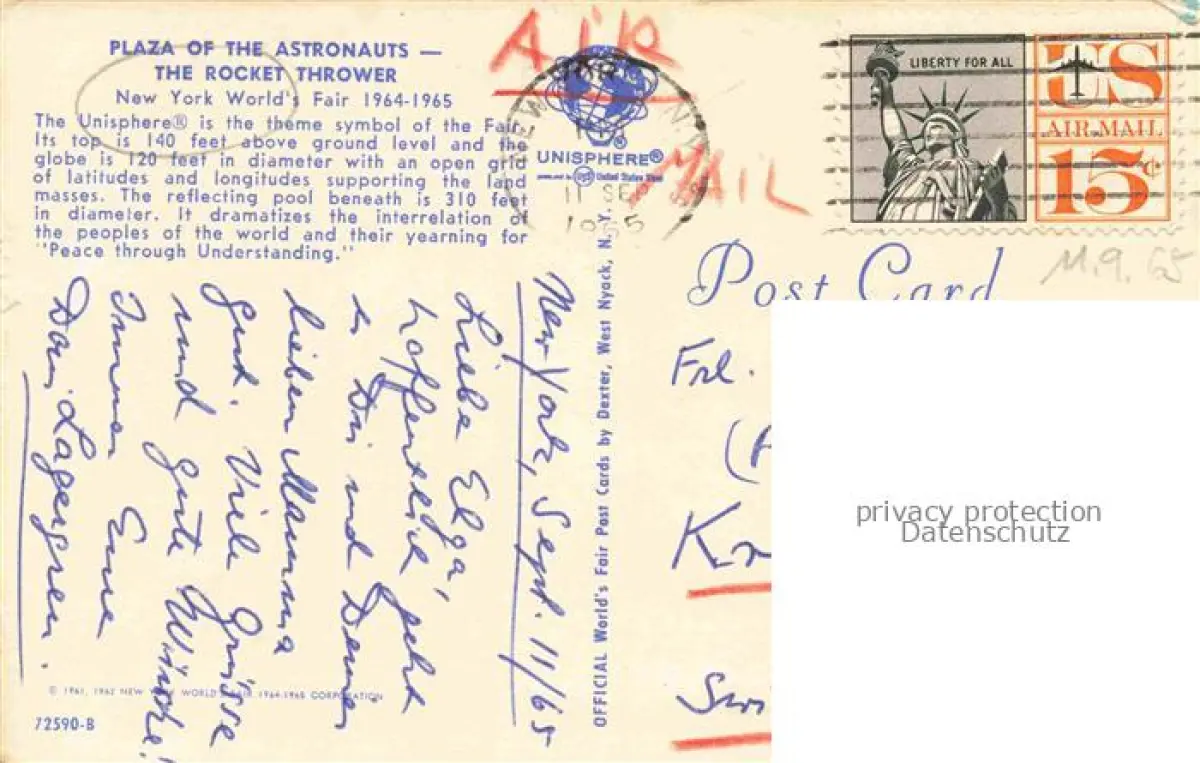 PLAZA OF THE ASTRONAUTS —
THE ROCKET THROWER
New York World's Fair 1964-1965
The Unisphere® is the theme symbol of the Fair.
Its top is 140 feet above ground level and the
globe is 120 feet in diameter with an open grid
of latitudes and longitudes supporting the land
masses. The reflecting pool beneath is 310 feet
in diameter. It dramatizes the interrelation of
the peoples of the world and their yearning for
"Peace through Understanding."
AiR
MAiL
UNISPHERE®
United States Steel
11 SE
1965
LIBERTY FOR ALL
US
AIR MAIL
15¢
11.9.65
Post Card
Frl.
privacy protection
Datenschutz
OFFICIAL World's Fair Post Cards by Dexter, West Nyack, N. Y.
New York, Sept. 11/65
Liebe Elga,
hoffentlich geht
es Dir und Deiner
lieben Mamma
gut. Viele Grüsse
und gute Wünsche!
Immer Eure
Lagergren.
© 1961, 1962 NEW YORK WORLD'S FAIR 1964-1965 CORPORATION
72590-B